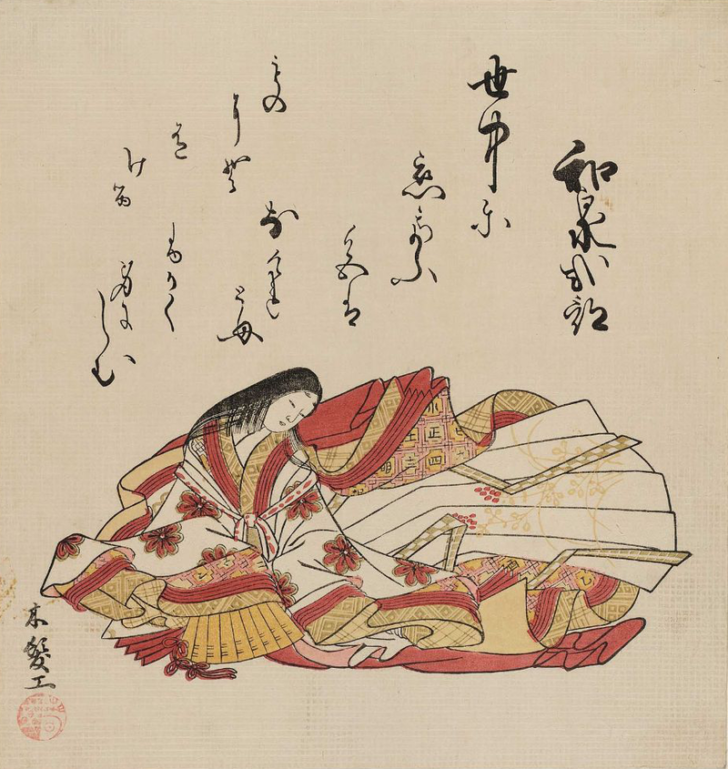 和泉式部
世中に
恋てふ
色は
なけれ
とも
ふかく
身に
しむ
もの
にそ
有
ける
木髪工